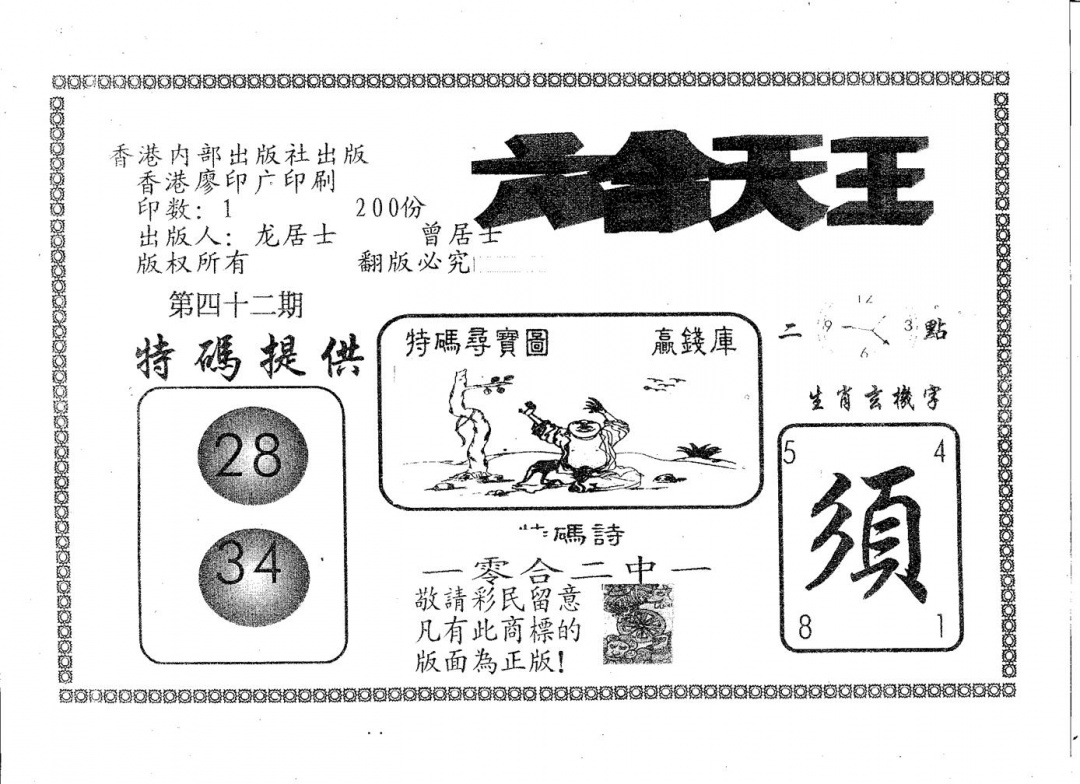 六合天王
香港内部出版社出版
香港廖印广印刷
印数: 1 200份
出版人: 龙居士 曾居士
版权所有 翻版必究
第四十二期
特碼提供
28
34
特碼尋寶圖 贏錢庫
二 12 9 3 6 點
生肖玄機字
5 4
須
8 1
碼詩
一零合二中一
敬請彩民留意
凡有此商標的
版面為正版!